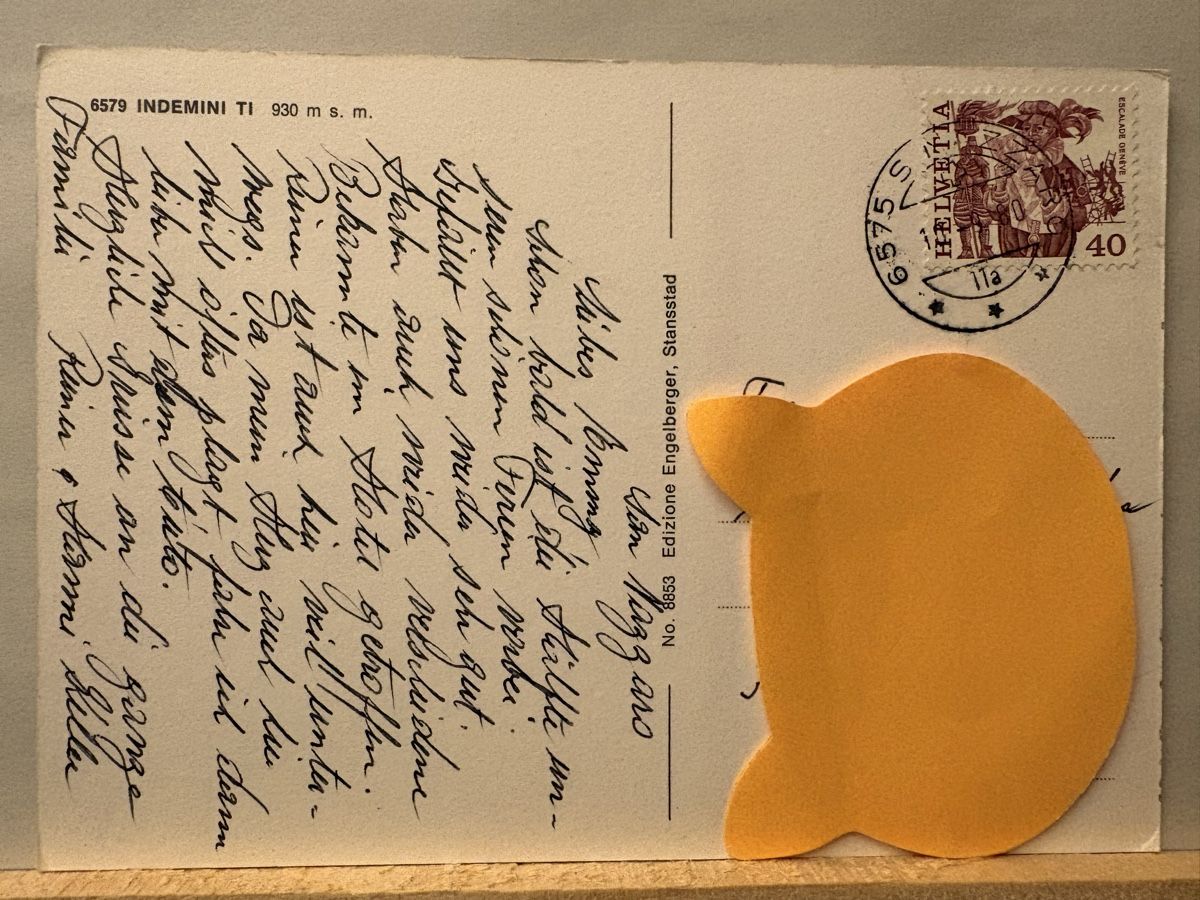 6579 INDEMINI TI 930 m s. m.
San Nazzaro
Liebes Emmy
schon bald ist die Hälfte un-
seren schönen Ferien vorbei
Gefällt uns wieder sehr gut
Haben auch wieder verschidene
Bekannte im Hotel getroffen.
Reiner ist auch hier viel unter-
wegs. Da mein Herz auch hier
mich öfters plagt fahre ich dann
lieber mit dem Auto.
Herzliche Grüsse an die ganze
Familie Reiner & Hanni Keller
No. 8853 Edizione Engelberger, Stansstad
HELVETIA
ESCALADE GENÈVE
40
6575 S
11a